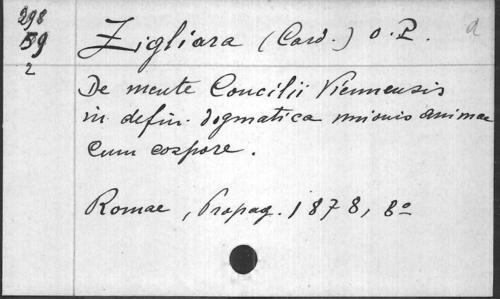 298
59
2
Zigliara (Card.) O.P.
a
De mente Concilii Viennensis
in defin. dogmatica unionis animae
cum corpore.
Romae, Propag. 1878, 8º